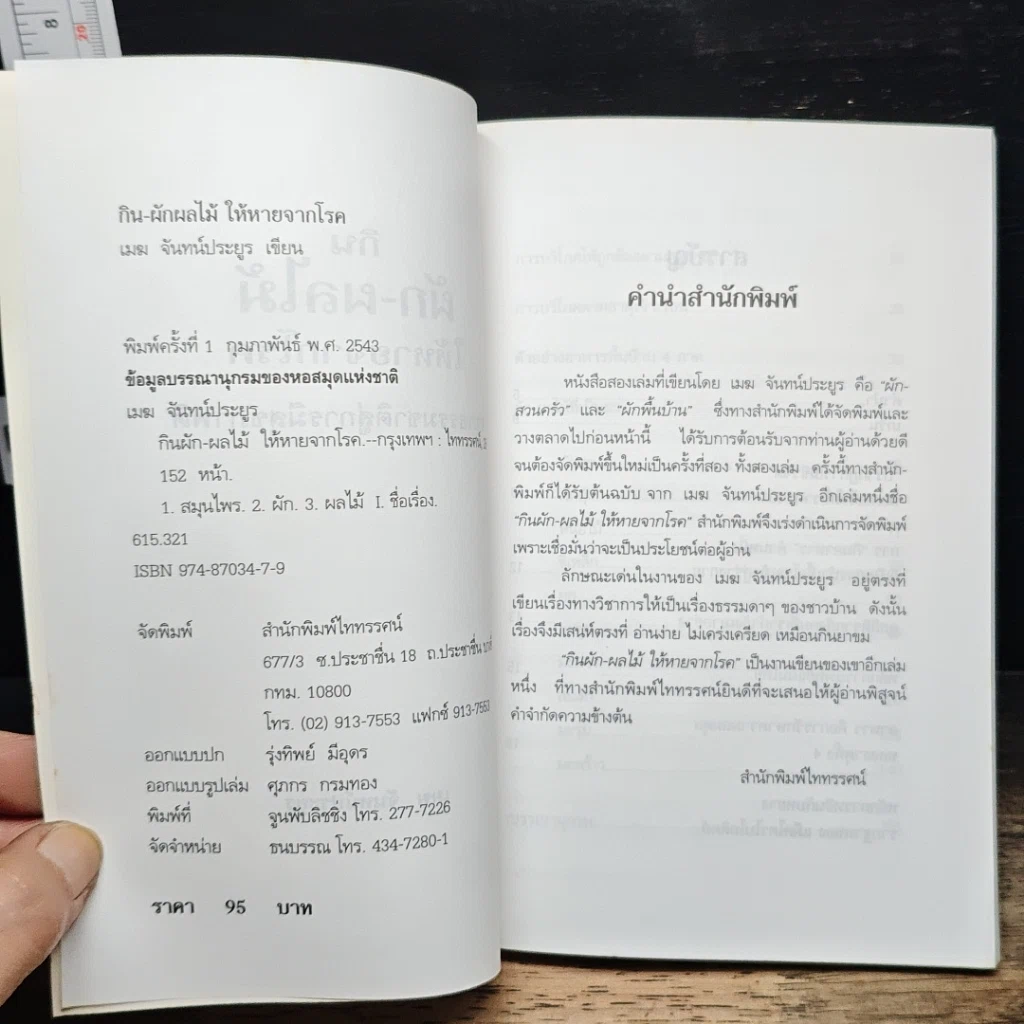 8
20
กิน-ผักผลไม้ ให้หายจากโรค
เมฆ จันทน์ประยูร เขียน
พิมพ์ครั้งที่ 1 กุมภาพันธ์ พ.ศ. 2543
ข้อมูลบรรณานุกรมของหอสมุดแห่งชาติ
เมฆ จันทน์ประยูร
กินผัก-ผลไม้ ให้หายจากโรค.--กรุงเทพฯ : ไททรรศน์,
152 หน้า.
1. สมุนไพร. 2. ผัก. 3. ผลไม้ I. ชื่อเรื่อง.
615.321
ISBN 974-87034-7-9
จัดพิมพ์ สำนักพิมพ์ไททรรศน์
677/3 ซ.ประชาชื่น 18 ถ.ประชาชื่น
กทม. 10800
โทร. (02) 913-7553 แฟกซ์ 913-7553
ออกแบบปก รุ่งทิพย์ มีอุดร
ออกแบบรูปเล่ม ศุภกร กรมทอง
พิมพ์ที่ จูนพับลิชชิ่ง โทร. 277-7226
จัดจำหน่าย ธนบรรณ โทร. 434-7280-1
ราคา 95 บาท
คำนำสำนักพิมพ์
หนังสือสองเล่มที่เขียนโดย เมฆ จันทน์ประยูร คือ “ผัก-
สวนครัว” และ “ผักพื้นบ้าน” ซึ่งทางสำนักพิมพ์ได้จัดพิมพ์และ
วางตลาดไปก่อนหน้านี้ ได้รับการต้อนรับจากท่านผู้อ่านด้วยดี
จนต้องจัดพิมพ์ขึ้นใหม่เป็นครั้งที่สอง ทั้งสองเล่ม ครั้งนี้ทางสำนัก-
พิมพ์ก็ได้รับต้นฉบับ จาก เมฆ จันทน์ประยูร อีกเล่มหนึ่งชื่อ
“กินผัก-ผลไม้ ให้หายจากโรค” สำนักพิมพ์จึงเร่งดำเนินการจัดพิมพ์
เพราะเชื่อมั่นว่าจะเป็นประโยชน์ต่อผู้อ่าน
ลักษณะเด่นในงานของ เมฆ จันทน์ประยูร อยู่ตรงที่
เขียนเรื่องทางวิชาการให้เป็นเรื่องธรรมดาๆ ของชาวบ้าน ดังนั้น
เรื่องจึงมีเสน่ห์ตรงที่ อ่านง่าย ไม่เคร่งเครียด เหมือนกินยาขม
“กินผัก-ผลไม้ ให้หายจากโรค” เป็นงานเขียนของเขาอีกเล่ม
หนึ่ง ที่ทางสำนักพิมพ์ไททรรศน์ยินดีที่จะเสนอให้ผู้อ่านพิสูจน์
คำจำกัดความข้างต้น
สำนักพิมพ์ไททรรศน์